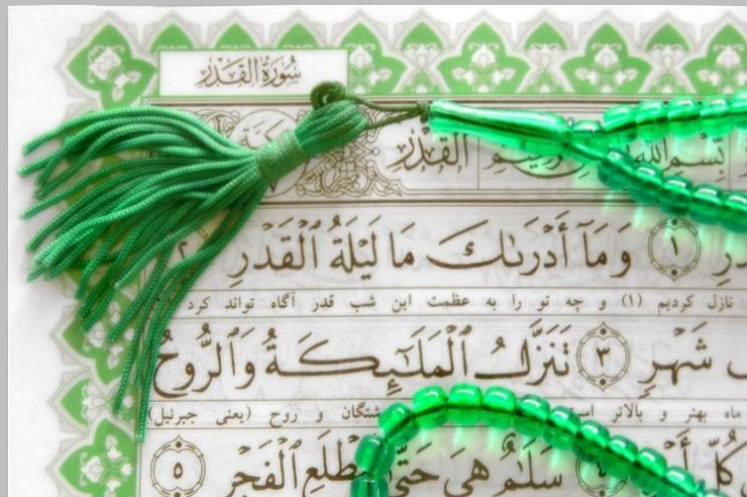 سُورَةُ الْقَدْرِ
الْقَدْرِ بِسْمِ اللَّهِ
١ وَمَآ أَدْرَىٰكَ مَا لَيْلَةُ الْقَدْرِ ٢
نازل کردیم (۱) و چه تو را به عظمت این شب قدر آگاه تواند کرد
شَهْرٍ ٣ تَنَزَّلُ الْمَلَٰٓئِكَةُ وَالرُّوحُ
ماه بهتر و بالاتر و روح (یعنی جبرئیل)
كُلِّ سَلَٰمٌ هِىَ حَتَّىٰ مَطْلَعِ الْفَجْرِ ٥